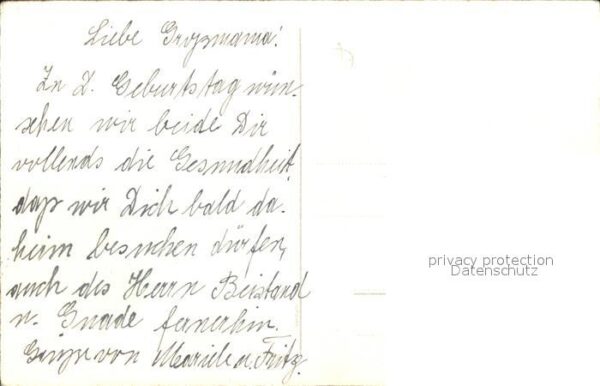 Liebe Grossmama!
Zu D. Geburtstag wün-
schen wir beide Dir
vollends die Gesundheit
dass wir Dich bald da-
heim besuchen dürfen,
auch des Herrn Beistand
u. Gnade fernerhin.
Grüsse von Mariele u. Fritz.
privacy protection
Datenschutz